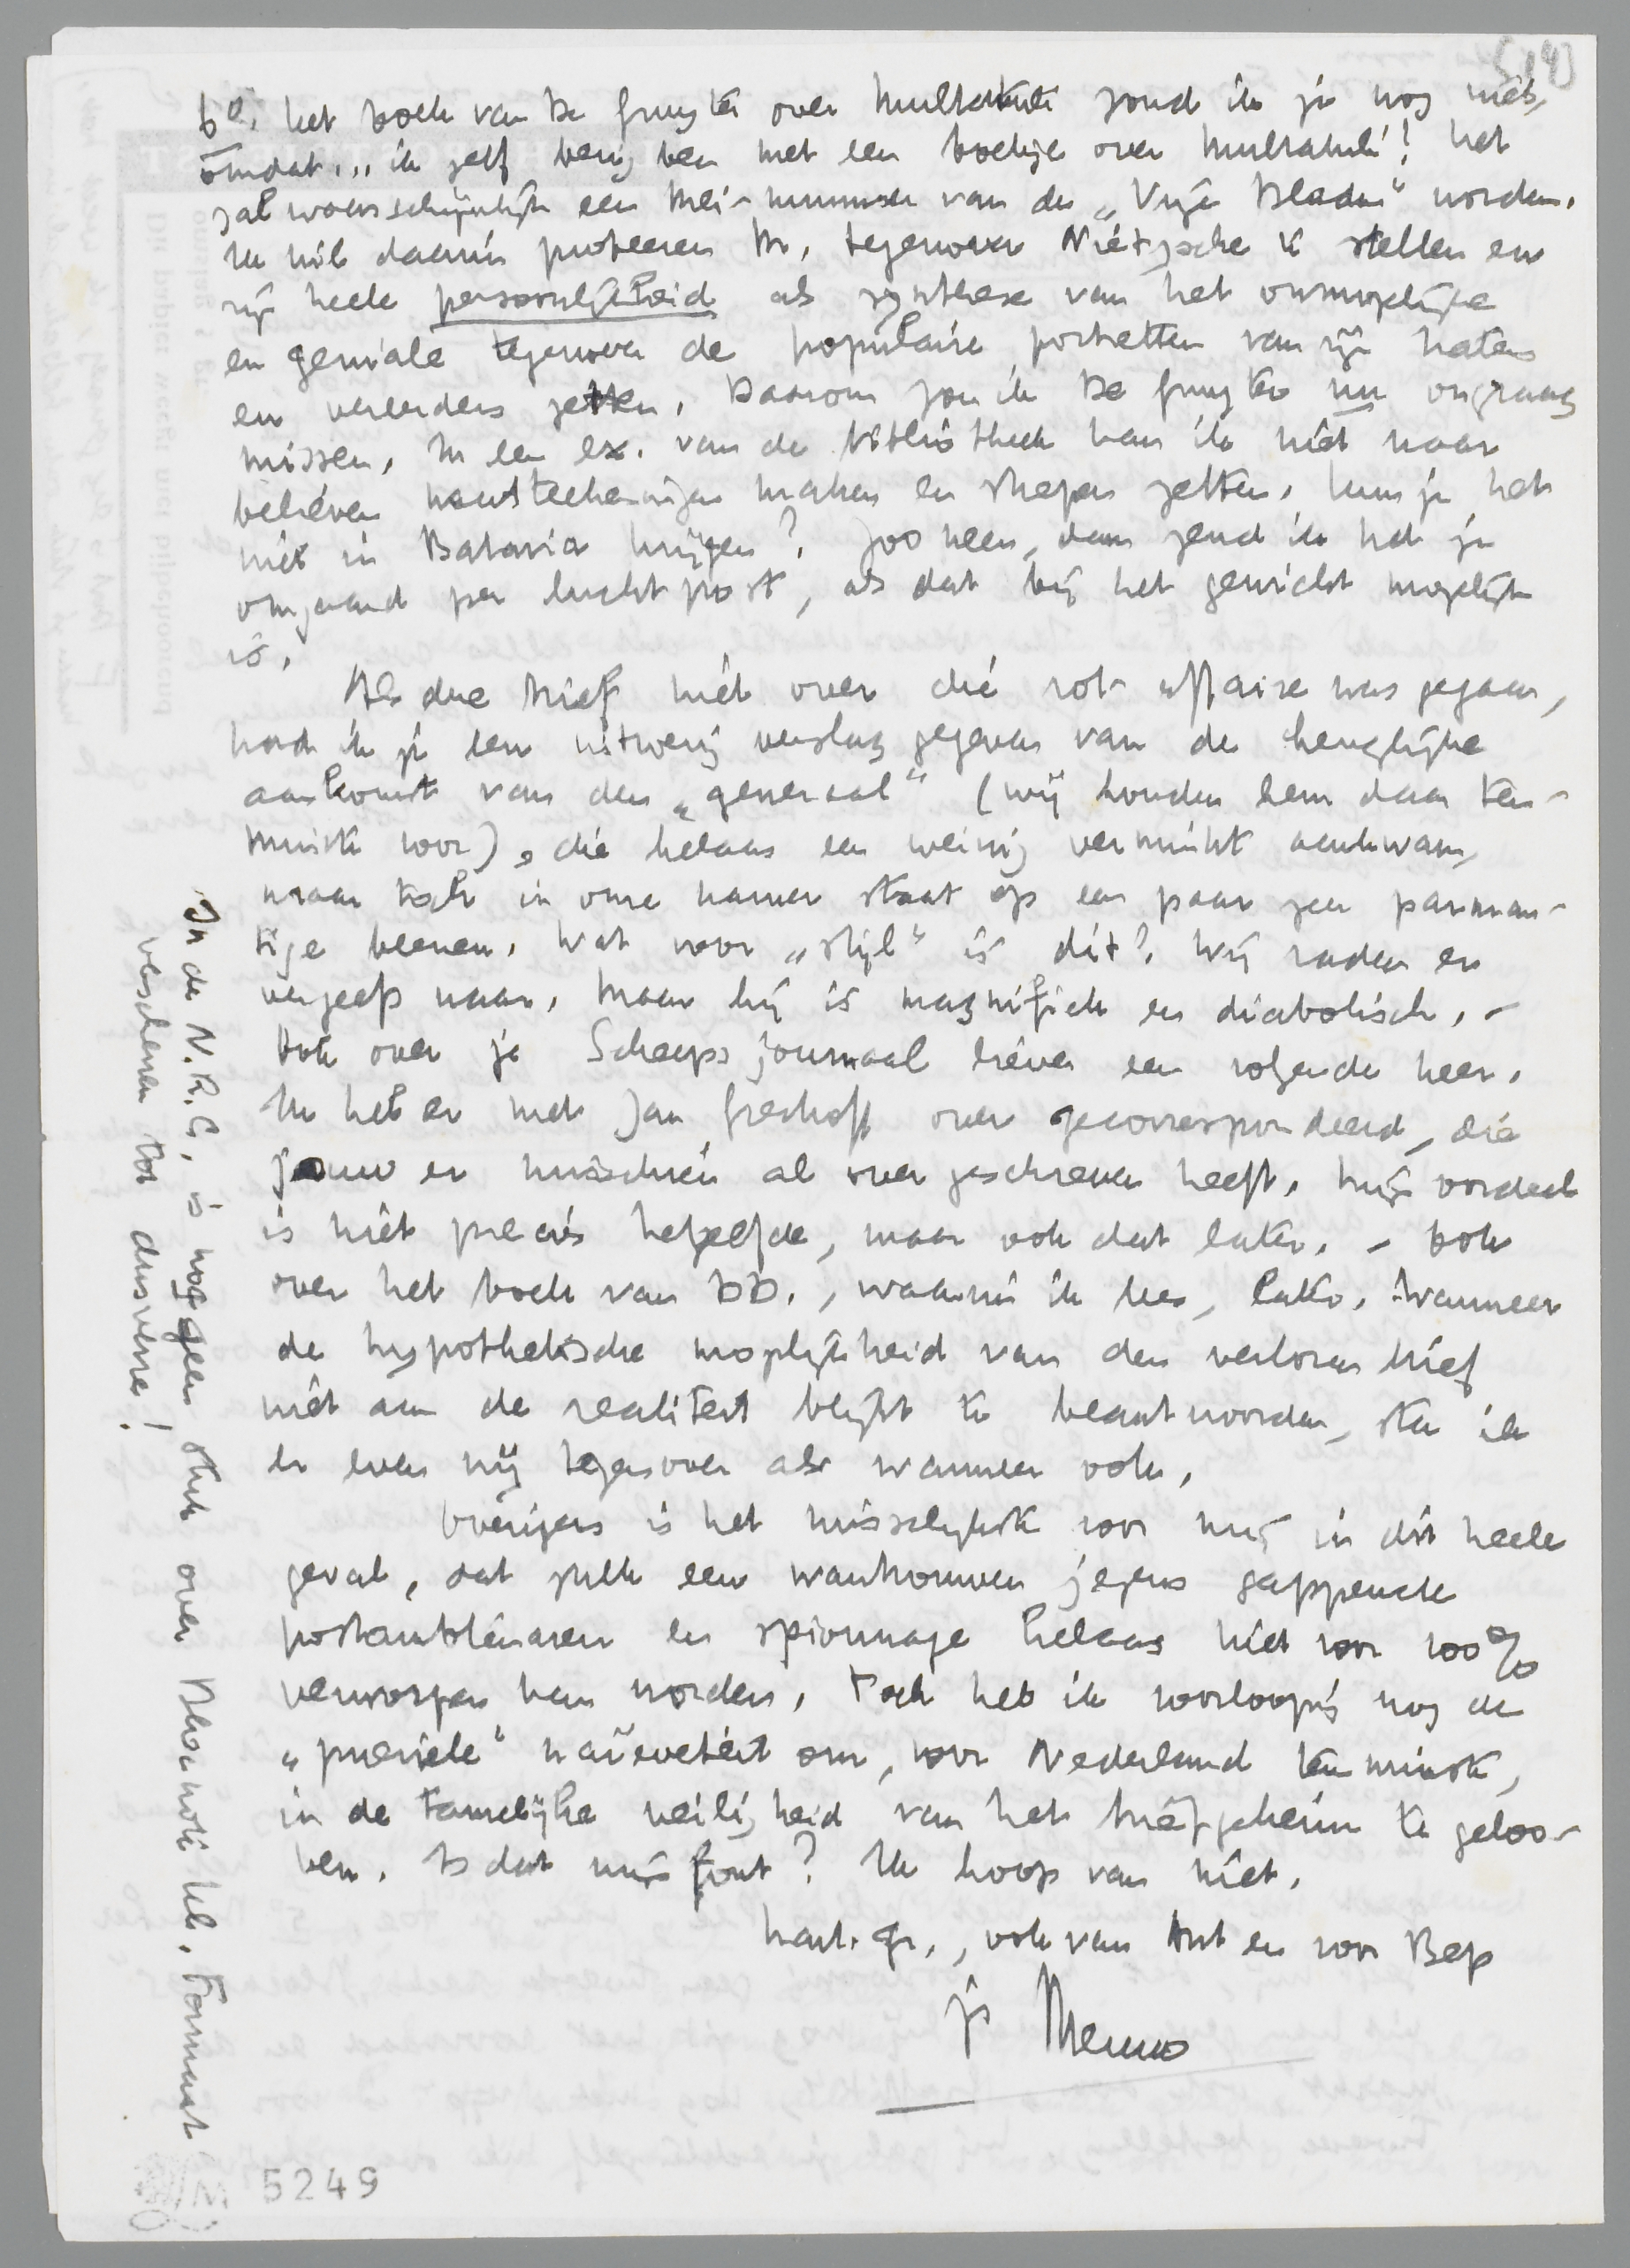 514)
6e. het boek van De Gruyter over Multatuli zond ik je nog niet,
omdat... ik zelf bezig ben met een boekje over Multatuli! Het
zal waarschijnlijk een Mei-nummer van de „Vrije Bladen" worden.
Ik wil daarin probeeren M. tegenover Nietzsche te stellen en
zijn heele persoonlijkheid als synthese van het onmogelijke
en geniale tegenover de populaire portretten van zijn haters
en vereerders zetten. Daarom zou ik De Gruyter nu ongraag
missen. In een ex. van de bibliotheek kan ik niet naar
believen aanteekeningen maken en strepen zetten. Kun je het
niet in Batavia krijgen? Zoo neen, dan zend ik het je
omgaand per luchtpost, als dat bij het gewicht mogelijk
is.
Als deze brief niet over die rot-affaire was gegaan,
had ik je een uitvoerig verslag gegeven van de heuglijke
aankomst van den „generaal" (wij houden hem daar ten-
minste voor), die helaas een weinig verminkt aankwam,
maar toch in onze kamer staat op een paar zeer parman-
tige beenen. Wat voor „stijl" is dit? Wij raden er
vergeefs naar. Maar hij is magnifiek en diabolisch. -
Ook over je Scheepsjournaal liever een volgende keer.
Ik heb er met Jan Greshoff over gecorrespondeerd, die
jouw er misschien al over geschreven heeft. Mijn oordeel
is niet precies hetzelfde, maar ook dat later. - Ook
over het boek van DD., waarin ik lees, later. Wanneer
de hypothetische mogelijkheid van den verloren brief
niet aan de realiteit blijkt te beantwoorden, sta ik
er even vrij tegenover als wanneer ook.
Overigens is het misselijkste voor mij in dit heele
geval, dat zulk een wantrouwen jegens gappende
postambtenaren en spionnage helaas niet voor 100%
verworpen kan worden. Toch heb ik voorloopig nog de
„pueriele" naïeveteit om, voor Nederland tenminste,
in de tamelijke veiligheid van het briefgeheim te geloo-
ven. Is dat mijn fout? Ik hoop van niet.
hart. gr., ook van Ant en voor Bep
je Menno
In de N.R.C. is nog geen stuk over Nha noh uh. Formaat
verschenen tot dusverre!
5249